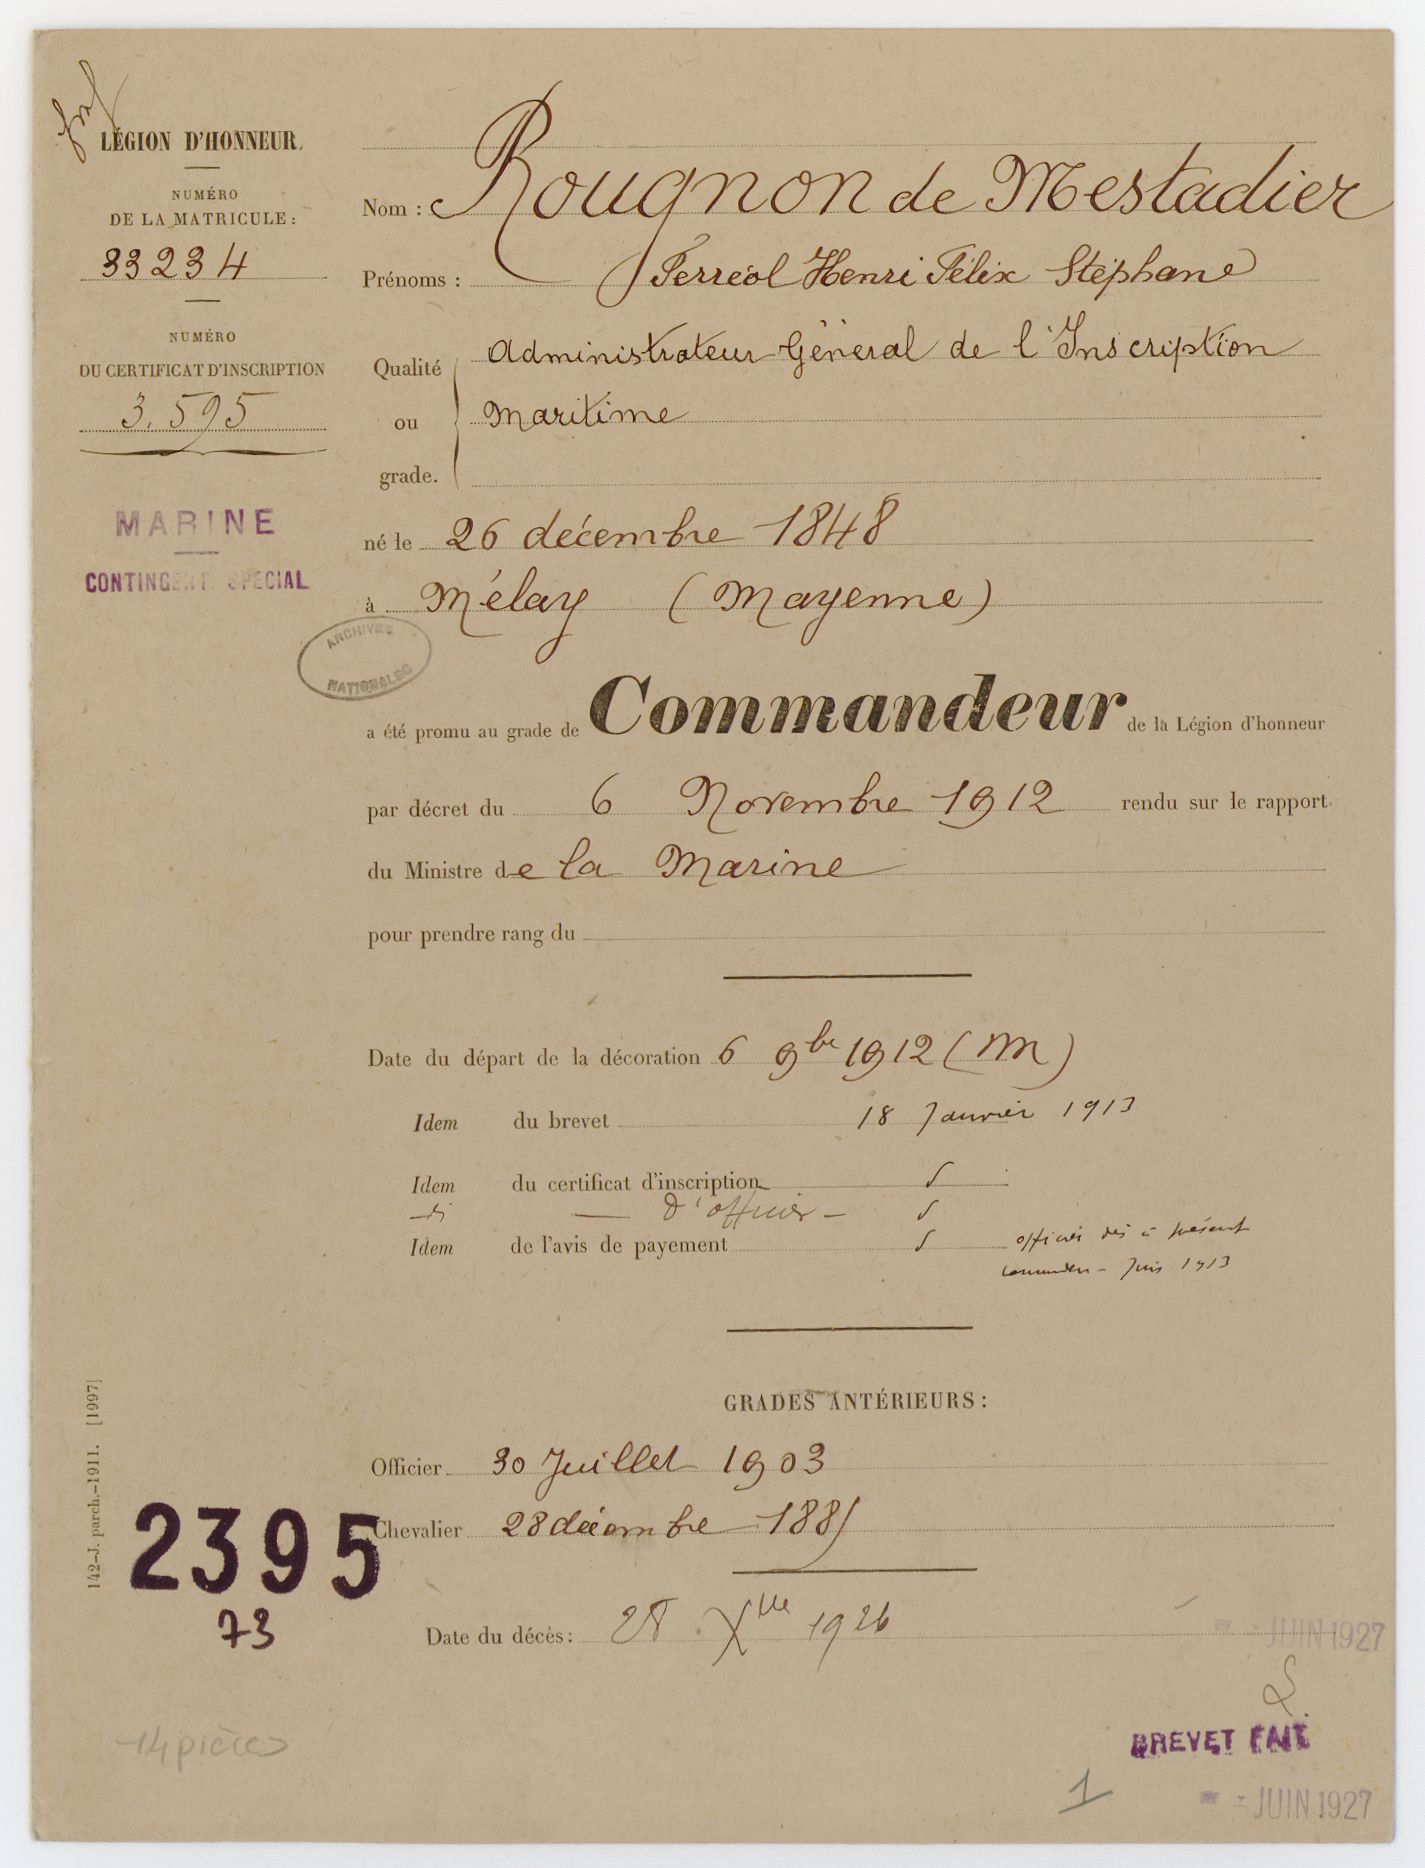 LÉGION D'HONNEUR.
NUMÉRO
DE LA MATRICULE :
33234
NUMÉRO
DU CERTIFICAT D'INSCRIPTION
3.595
MARINE
CONTINGENT SPÉCIAL
Nom : Rougnon de Mestadier
Prénoms : Ferréol Henri Félix Stéphane
Qualité ou grade. Administrateur Général de l'Inscription
Maritime
né le 26 décembre 1848
à Mélay (Mayenne)
ARCHIVES NATIONALES
a été promu au grade de Commandeur de la Légion d'honneur
par décret du 6 Novembre 1912 rendu sur le rapport
du Ministre de la Marine
pour prendre rang du
Date du départ de la décoration 6 9bre 1912 (M)
Idem du brevet 18 Janvier 1913
Idem du certificat d'inscription
— d'officier —
Idem de l'avis de payement officier dès à présent
Juin 1913
GRADES ANTÉRIEURS :
Officier 30 Juillet 1903
Chevalier 28 décembre 1885
Date du décès : 28 Xbre 1926
142-J. parch.-1911. [1997]
2395
73
14 pièces
JUIN 1927
BREVET FAIT
1
JUIN 1927